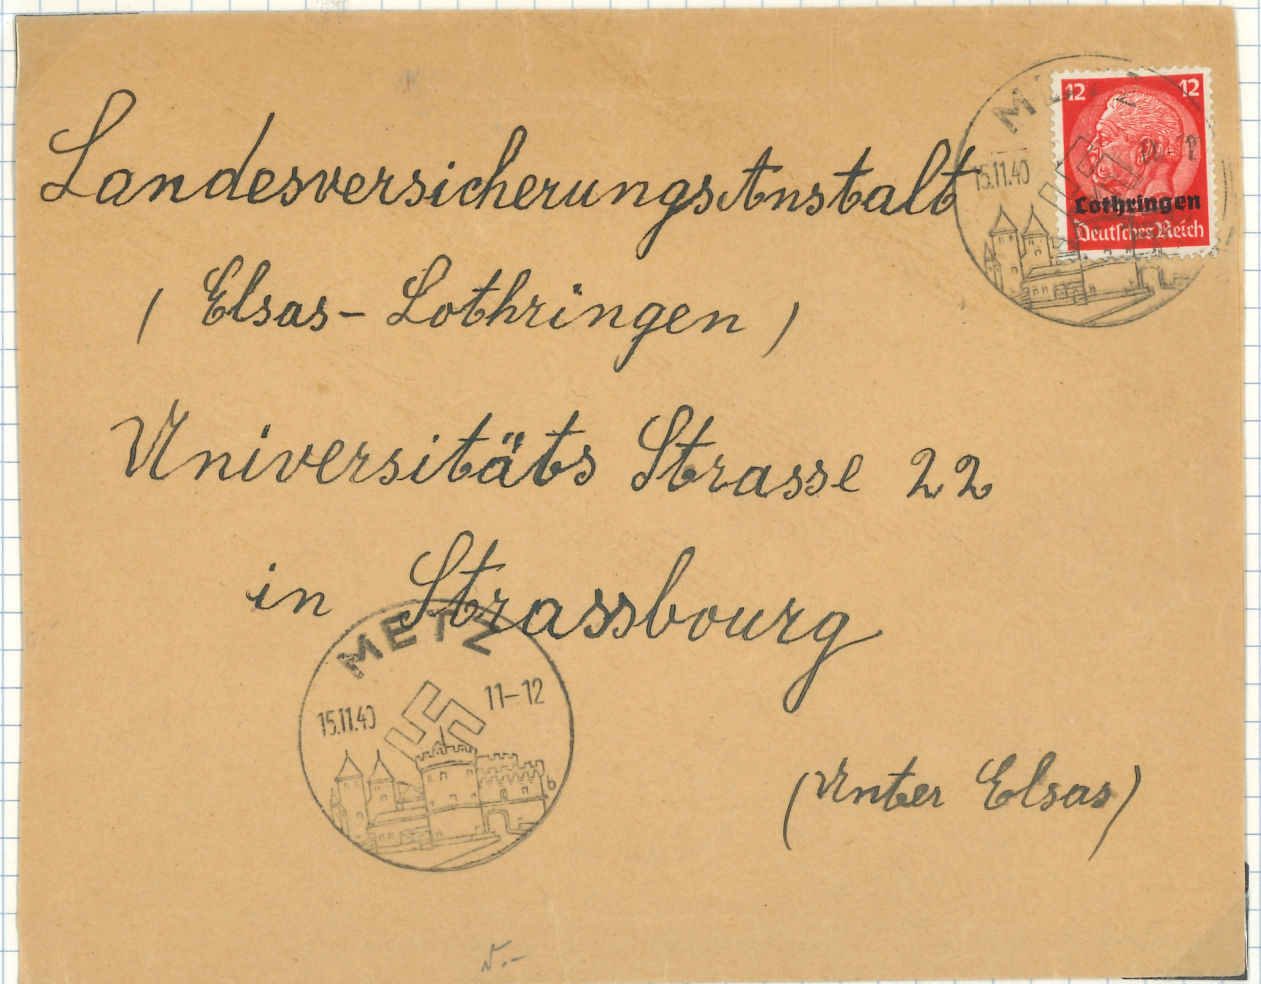 METZ
15.11.40 11-12
12 12
Lothringen
Deutsches Reich
LandesversicherungsAnstalt
( Elsas - Lothringen )
Universitäts Strasse 22
in Strassbourg
METZ
15.11.40 11-12
b
(Unter Elsas)